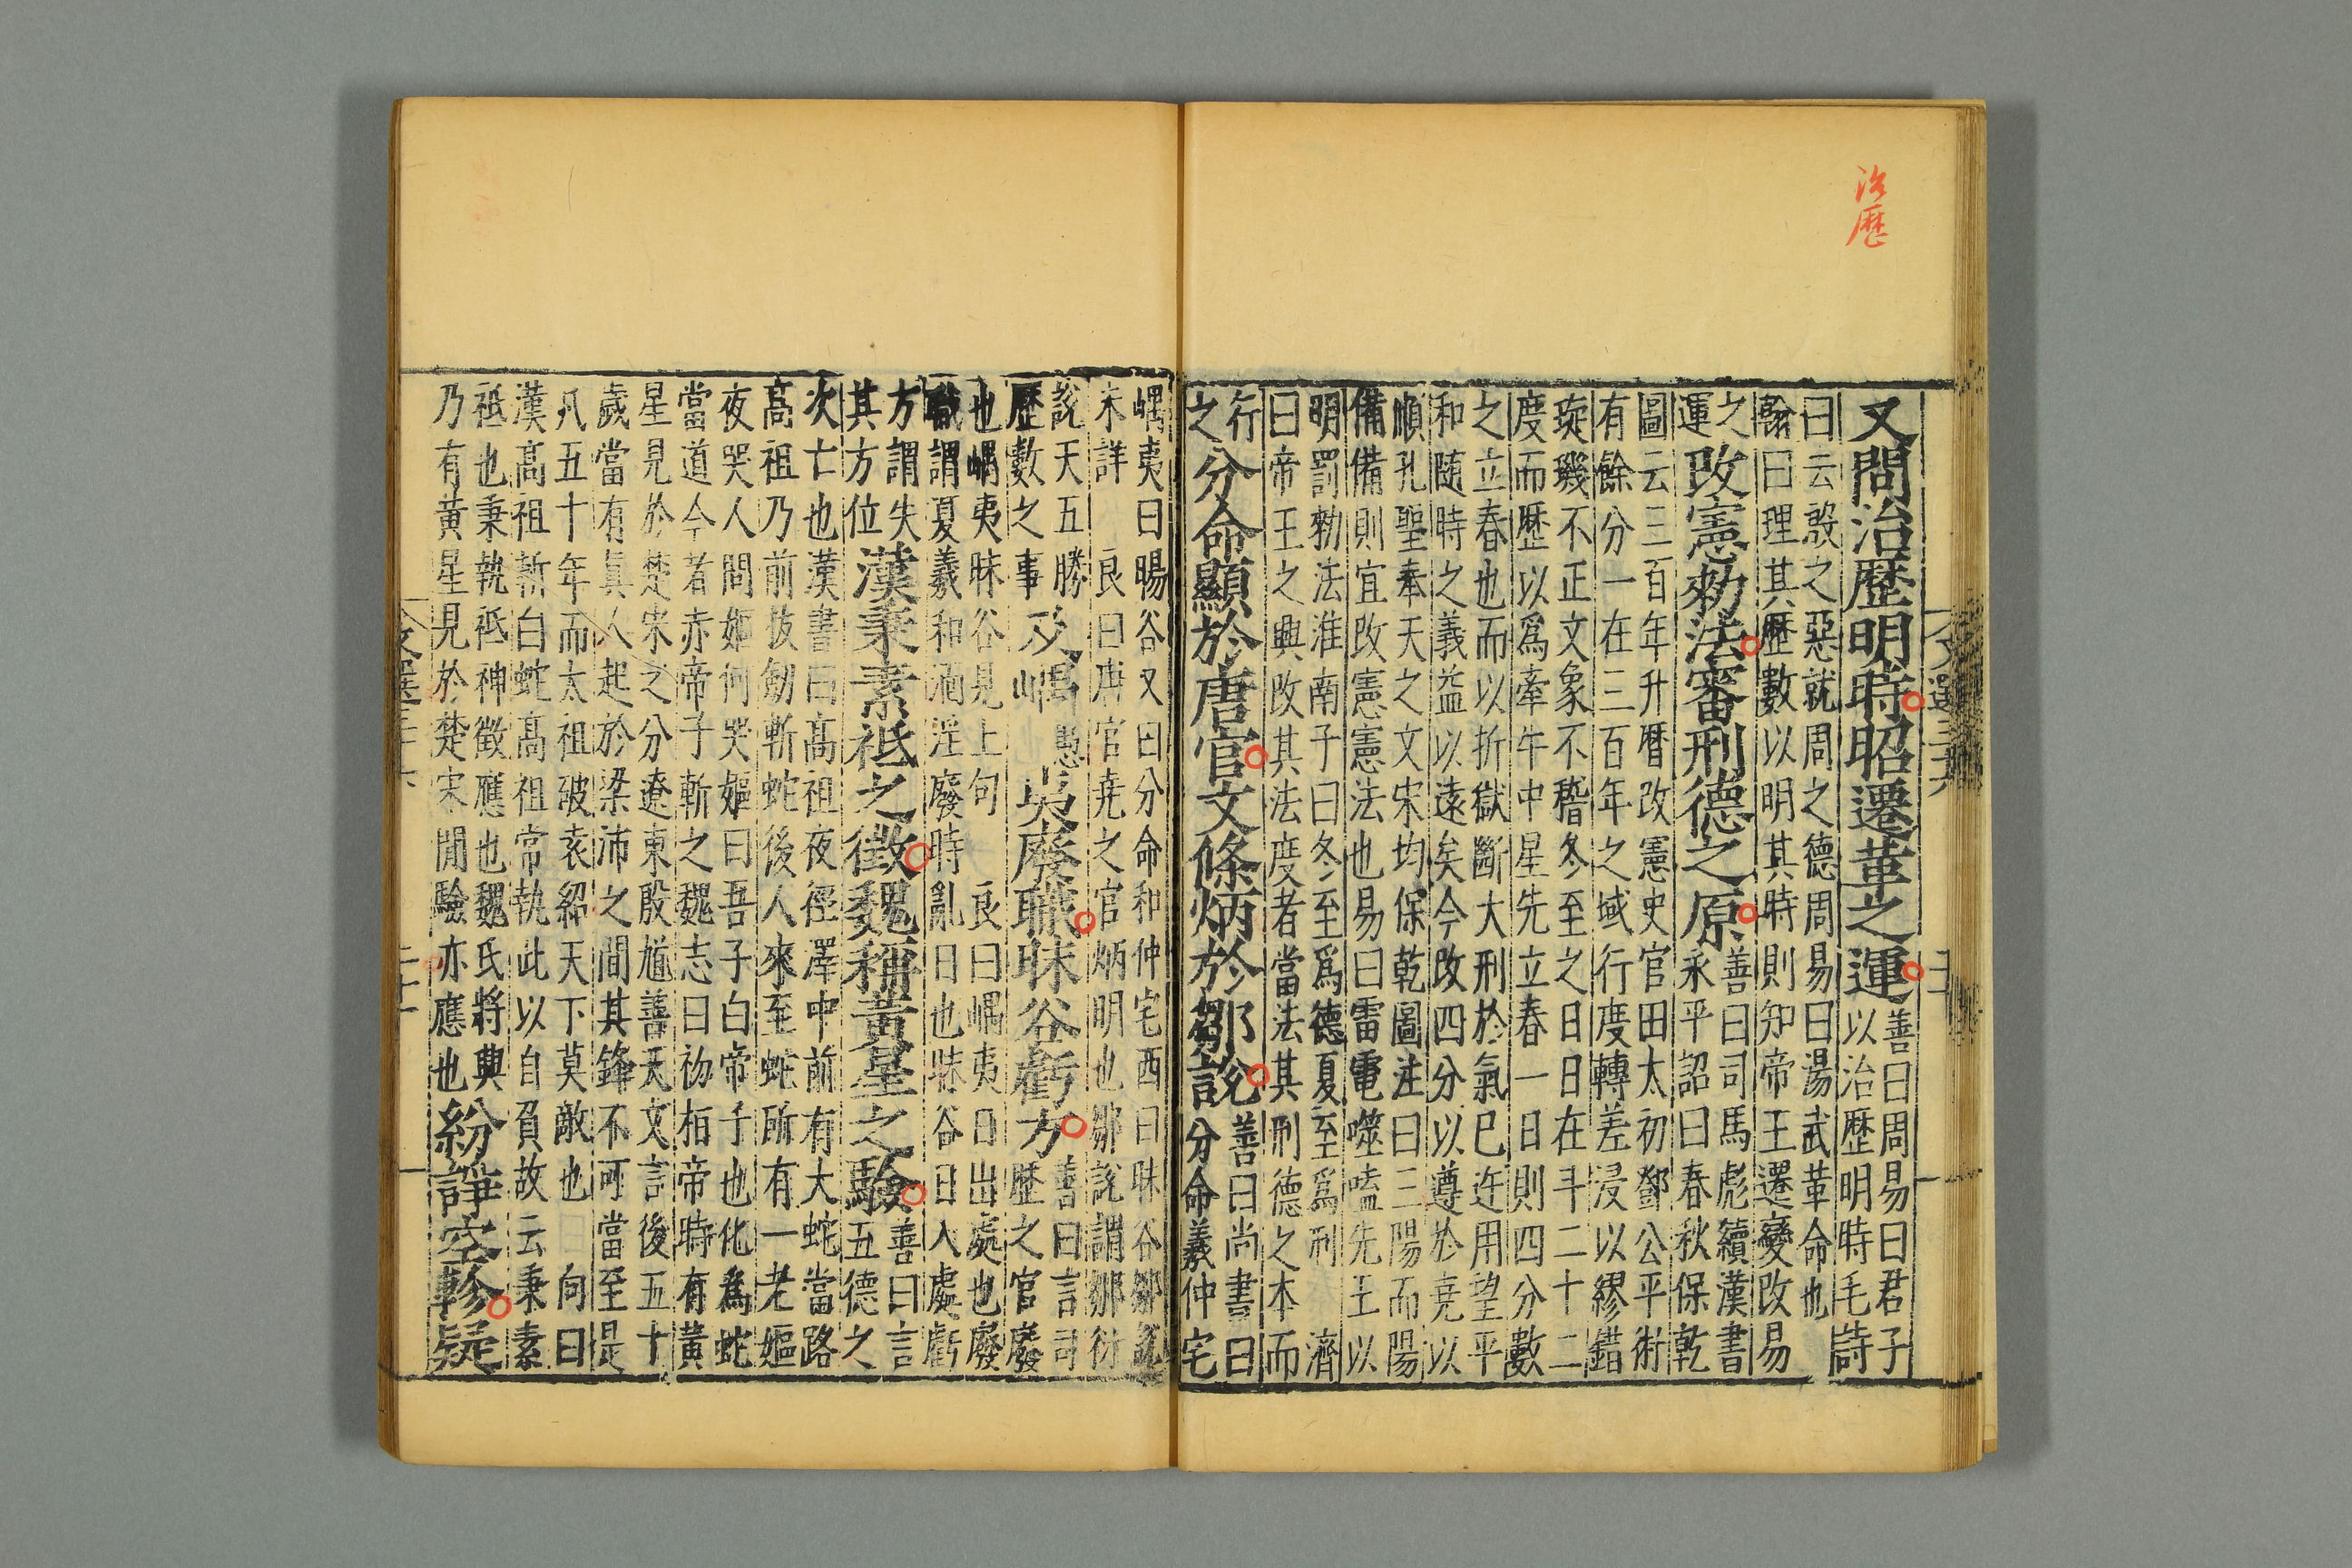 治歷
又問治歷明時昭遷革之運善曰周易曰君子
以治歷明時毛詩
曰云殷之惡就周之德周易曰湯武革命也
翰曰理其歷數以明其時則知帝王遷變改易
之
運改憲勑法審刑德之原善曰司馬彪續漢書
永平詔曰春秋保乾
圖云三百年升曆改憲史官田太初鄧公平術
有餘分一在三百年之域行度轉差浸以繆錯
璇璣不正文象不稽冬至之日日在斗二十二
度而歷以爲牽牛中星先立春一日則四分數
之立春也而以折獄斷大刑於氣已迕用望平
和隨時之義益以遠矣今改四分以遵於堯以
順孔聖奉天之文宋均保乾圖注曰三陽而陽
備備則宜改憲憲法也易曰雷電噬嗑先王以
明罰勑法淮南子曰冬至爲德夏至爲刑 濟
曰帝王之興改其法度者當法其刑德之本而
行
之分命顯於唐官文條炳於鄒說善曰尚書曰
分命羲仲宅
嵎夷曰暘谷又曰分命和仲宅西曰昧谷鄒說
未詳 良曰唐官堯之官炳明也鄒說謂鄒衍
說天五勝
歷數之事及嵎夷廢職昧谷虧方善曰言司
歷之官廢
也嵎夷昧谷見上句 良曰嵎夷日出處也廢
職謂夏羲和湎淫廢時亂日也昧谷日入處虧
方謂失
其方位漢秉素祇之徵魏稱黃星之驗善曰言
五德之
次亡也漢書曰高祖夜徑澤中前有大蛇當路
高祖乃前拔劒斬蛇後人來至蛇所有一老嫗
夜哭人問嫗何哭嫗曰吾子白帝子也化爲蛇
當道今者赤帝子斬之魏志曰初桓帝時有黃
星見於楚宋之分遼東殷馗善天文言後五十
歲當有眞人起於梁沛之間其鋒不可當至是
凡五十年而太祖破袁紹天下莫敵也 向曰
漢高祖斬白蛇高祖常執此以自負故云秉素
祇也秉執祇神徵應也魏氏將興
乃有黃星見於楚宋間驗亦應也紛諍空軫疑